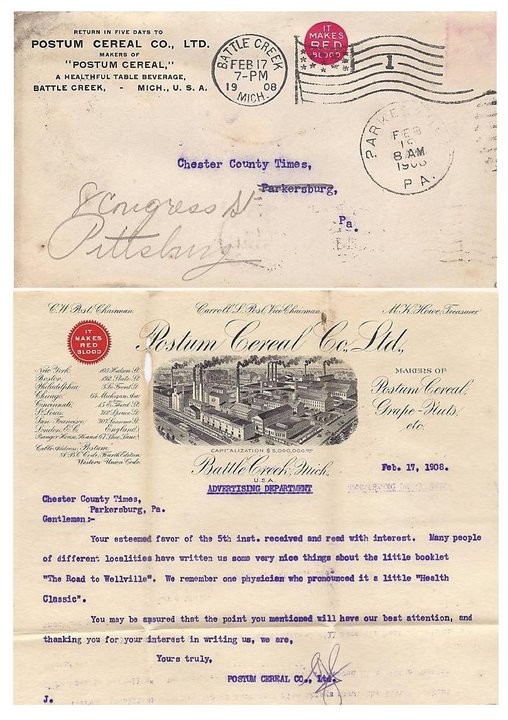 RETURN IN FIVE DAYS TO
POSTUM CEREAL CO., LTD.
MAKERS OF
"POSTUM CEREAL,"
A HEALTHFUL TABLE BEVERAGE,
BATTLE CREEK, - MICH., U. S. A.
BATTLE CREEK
FEB 17
7-PM
1908
MICH.
IT
MAKES
RED
BLOOD
1
FEB
8 AM
1908
PA.
Chester County Times,
Parkersburg,
Pa.
8 Congress St
Pittsburg
C.W. Post, Chairman.
Carroll L. Post, Vice Chairman
M.K. Howe, Treasurer
IT
MAKES
RED
BLOOD
Postum Cereal Co., Ltd.,
New York,
Boston,
Philadelphia
Chicago
Cincinnati,
St. Louis,
San Francisco
London, E.C. England
Cable Address: Postum
Western Union Code.
MAKERS OF
Postum Cereal,
Grape-Nuts,
etc.
CAPITALIZATION $5,000,000.00
Battle Creek, Mich.
U.S.A.
ADVERTISING DEPARTMENT
Feb. 17, 1908.
Chester County Times,
Parkersburg, Pa.
Gentlemen:-
Your esteemed favor of the 5th inst. received and read with interest. Many people
of different localities have written us some very nice things about the little booklet
"The Road to Wellville". We remember one physician who pronounced it a little "Health
Classic".
You may be assured that the point you mentioned will have our best attention, and
thanking you for your interest in writing us, we are,
Yours truly,
POSTUM CEREAL CO., Ltd.
J.